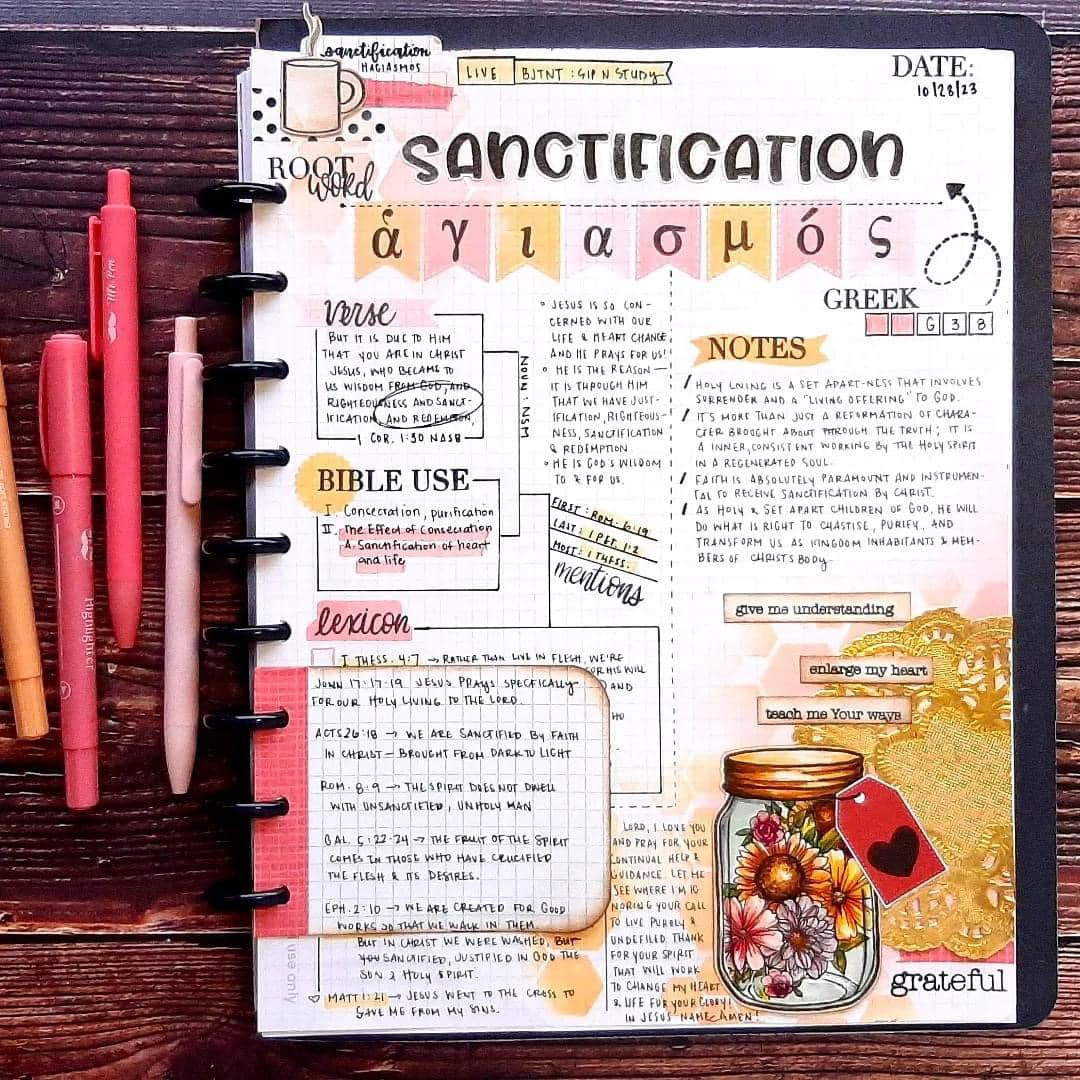 sanctification
HAGIASMOS
LIVE BJTNT : SIP N STUDY
DATE:
10/28/23
ROOT
word
SANCTIFICATION
ἁγιασμός
GREEK
G 3 8
verse
BUT IT IS DUE TO HIM
THAT YOU ARE IN CHRIST
JESUS, WHO BECAME TO
US WISDOM FROM GOD, AND
RIGHTEOUSNESS AND SANCT-
IFICATION, AND REDEMPTION,
1 COR. 1:30 NASB
NOUN : NSM
BIBLE USE
I. Consecration, purification
II. The Effect of Consecration
A. Sanctification of heart
and life
° JESUS IS SO CON-
CERNED WITH OUR
LIFE & HEART CHANGE,
AND HE PRAYS FOR US!
° HE IS THE REASON —
IT IS THROUGH HIM
THAT WE HAVE JUST-
IFICATION, RIGHTEOUS-
NESS, SANCTIFICATION
& REDEMPTION
° HE IS GOD'S WISDOM
TO & FOR US.
FIRST : ROM. 6:19
LAST : 1 PET. 1:2
MOST : 1 THESS.
mentions
NOTES
/ HOLY LIVING IS A SET APART-NESS THAT INVOLVES
SURRENDER AND A "LIVING OFFERING" TO GOD.
/ IT'S MORE THAN JUST A REFORMATION OF CHARA-
CTER BROUGHT ABOUT THROUGH THE TRUTH; IT IS
A INNER, CONSISTENT WORKING BY THE HOLY SPIRIT
IN A REGENERATED SOUL.
/ FAITH IS ABSOLUTELY PARAMOUNT AND INSTRUMEN-
TAL TO RECEIVE SANCTIFICATION BY CHRIST.
/ AS HOLY & SET APART CHILDREN OF GOD, HE WILL
DO WHAT IS RIGHT TO CHASTISE, PURIFY, AND
TRANSFORM US AS KINGDOM INHABITANTS & MEM-
BERS OF CHRIST'S BODY.
lexicon
I THESS. 4:7 → RATHER THAN LIVE IN FLESH, WE'RE
FOR HIS WILL
AND
HO
JOHN 17:17-19 JESUS PRAYS SPECIFICALLY
FOR OUR HOLY LIVING TO THE LORD.
ACTS 26:18 → WE ARE SANCTIFIED BY FAITH
IN CHRIST — BROUGHT FROM DARK TO LIGHT
ROM. 8:9 → THE SPIRIT DOES NOT DWELL
WITH UNSANCTIFIED, UNHOLY MAN
GAL. 5:22-24 → THE FRUIT OF THE SPIRIT
COMES IN THOSE WHO HAVE CRUCIFIED
THE FLESH & ITS DESIRES.
EPH. 2:10 → WE ARE CREATED FOR GOOD
WORKS SO THAT WE WALK IN THEM.
BUT IN CHRIST WE WERE WASHED, BUT
YOU SANCTIFIED, JUSTIFIED IN GOD THE
SON & HOLY SPIRIT.
MATT 1:21 → JESUS WENT TO THE CROSS TO
SAVE ME FROM MY SINS.
use only
LORD, I LOVE YOU
AND PRAY FOR YOUR
CONTINUAL HELP &
GUIDANCE. LET ME
SEE WHERE I'M IG
NORING YOUR CALL
TO LIVE PURELY &
UNDEFILED, THANK
FOR YOUR SPIRIT
THAT WILL WORK
TO CHANGE MY HEART
& LIFE FOR YOUR GLORY!
IN JESUS NAME, AMEN!
give me understanding
enlarge my heart
teach me Your ways
grateful
Mr.em
Highlighter